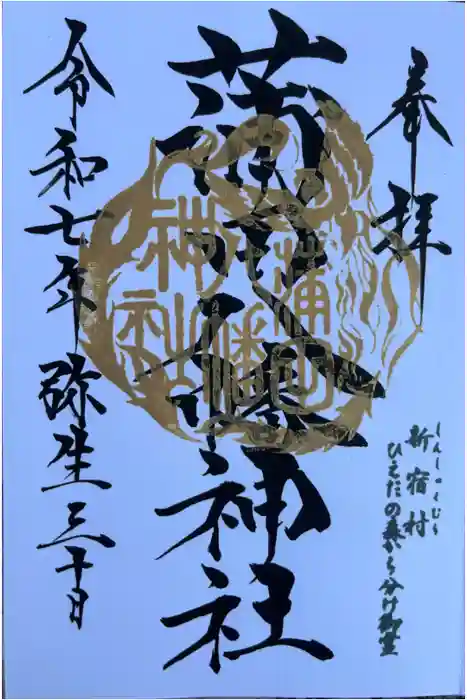 奉拝
しんしゅくむら
新宿村
ひえだの森から分け御霊
蒲田八幡神社
蒲田
八幡
神社
令和七年 弥生三十日